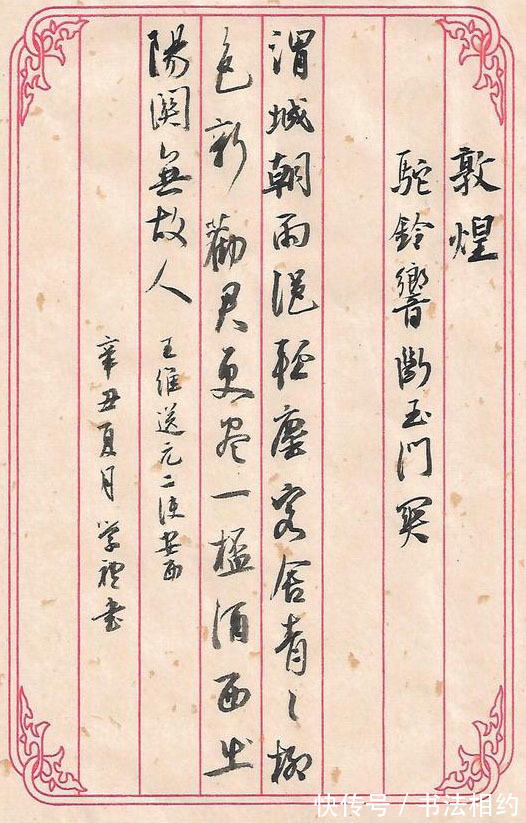 敦煌
駝鈴響斷玉門關
渭城朝雨浥輕塵客舍青々柳
色新勸君更盡一杯酒西出
陽關無故人
王維送元二使安西
辛丑夏月學禮書
快传号/书法相约